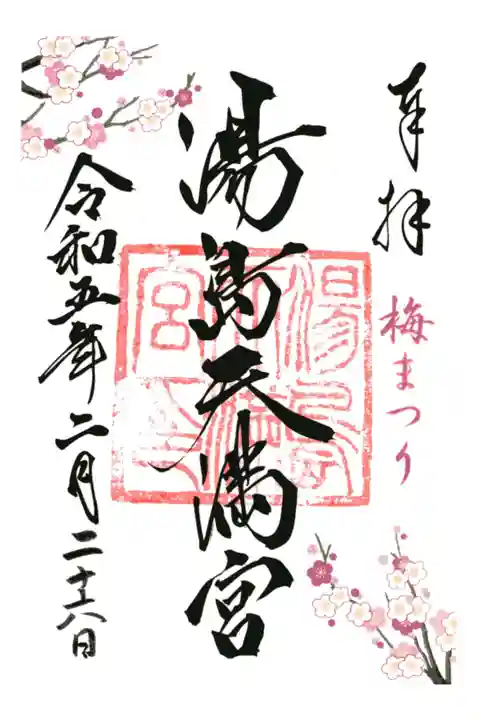 奉拝
梅まつり
湯島天満宮
湯島
天満
宮印
令和五年二月二十六日